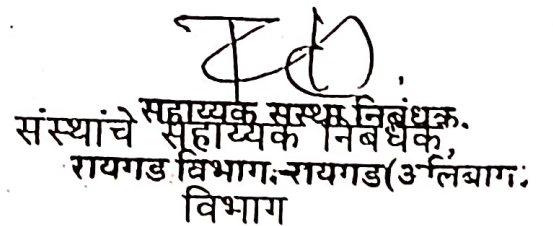 सहाय्यक संस्था निबंधक.
संस्थांचे सहाय्यक निबंधक,
रायगड विभाग.-रायगड(अलिबाग.
विभाग